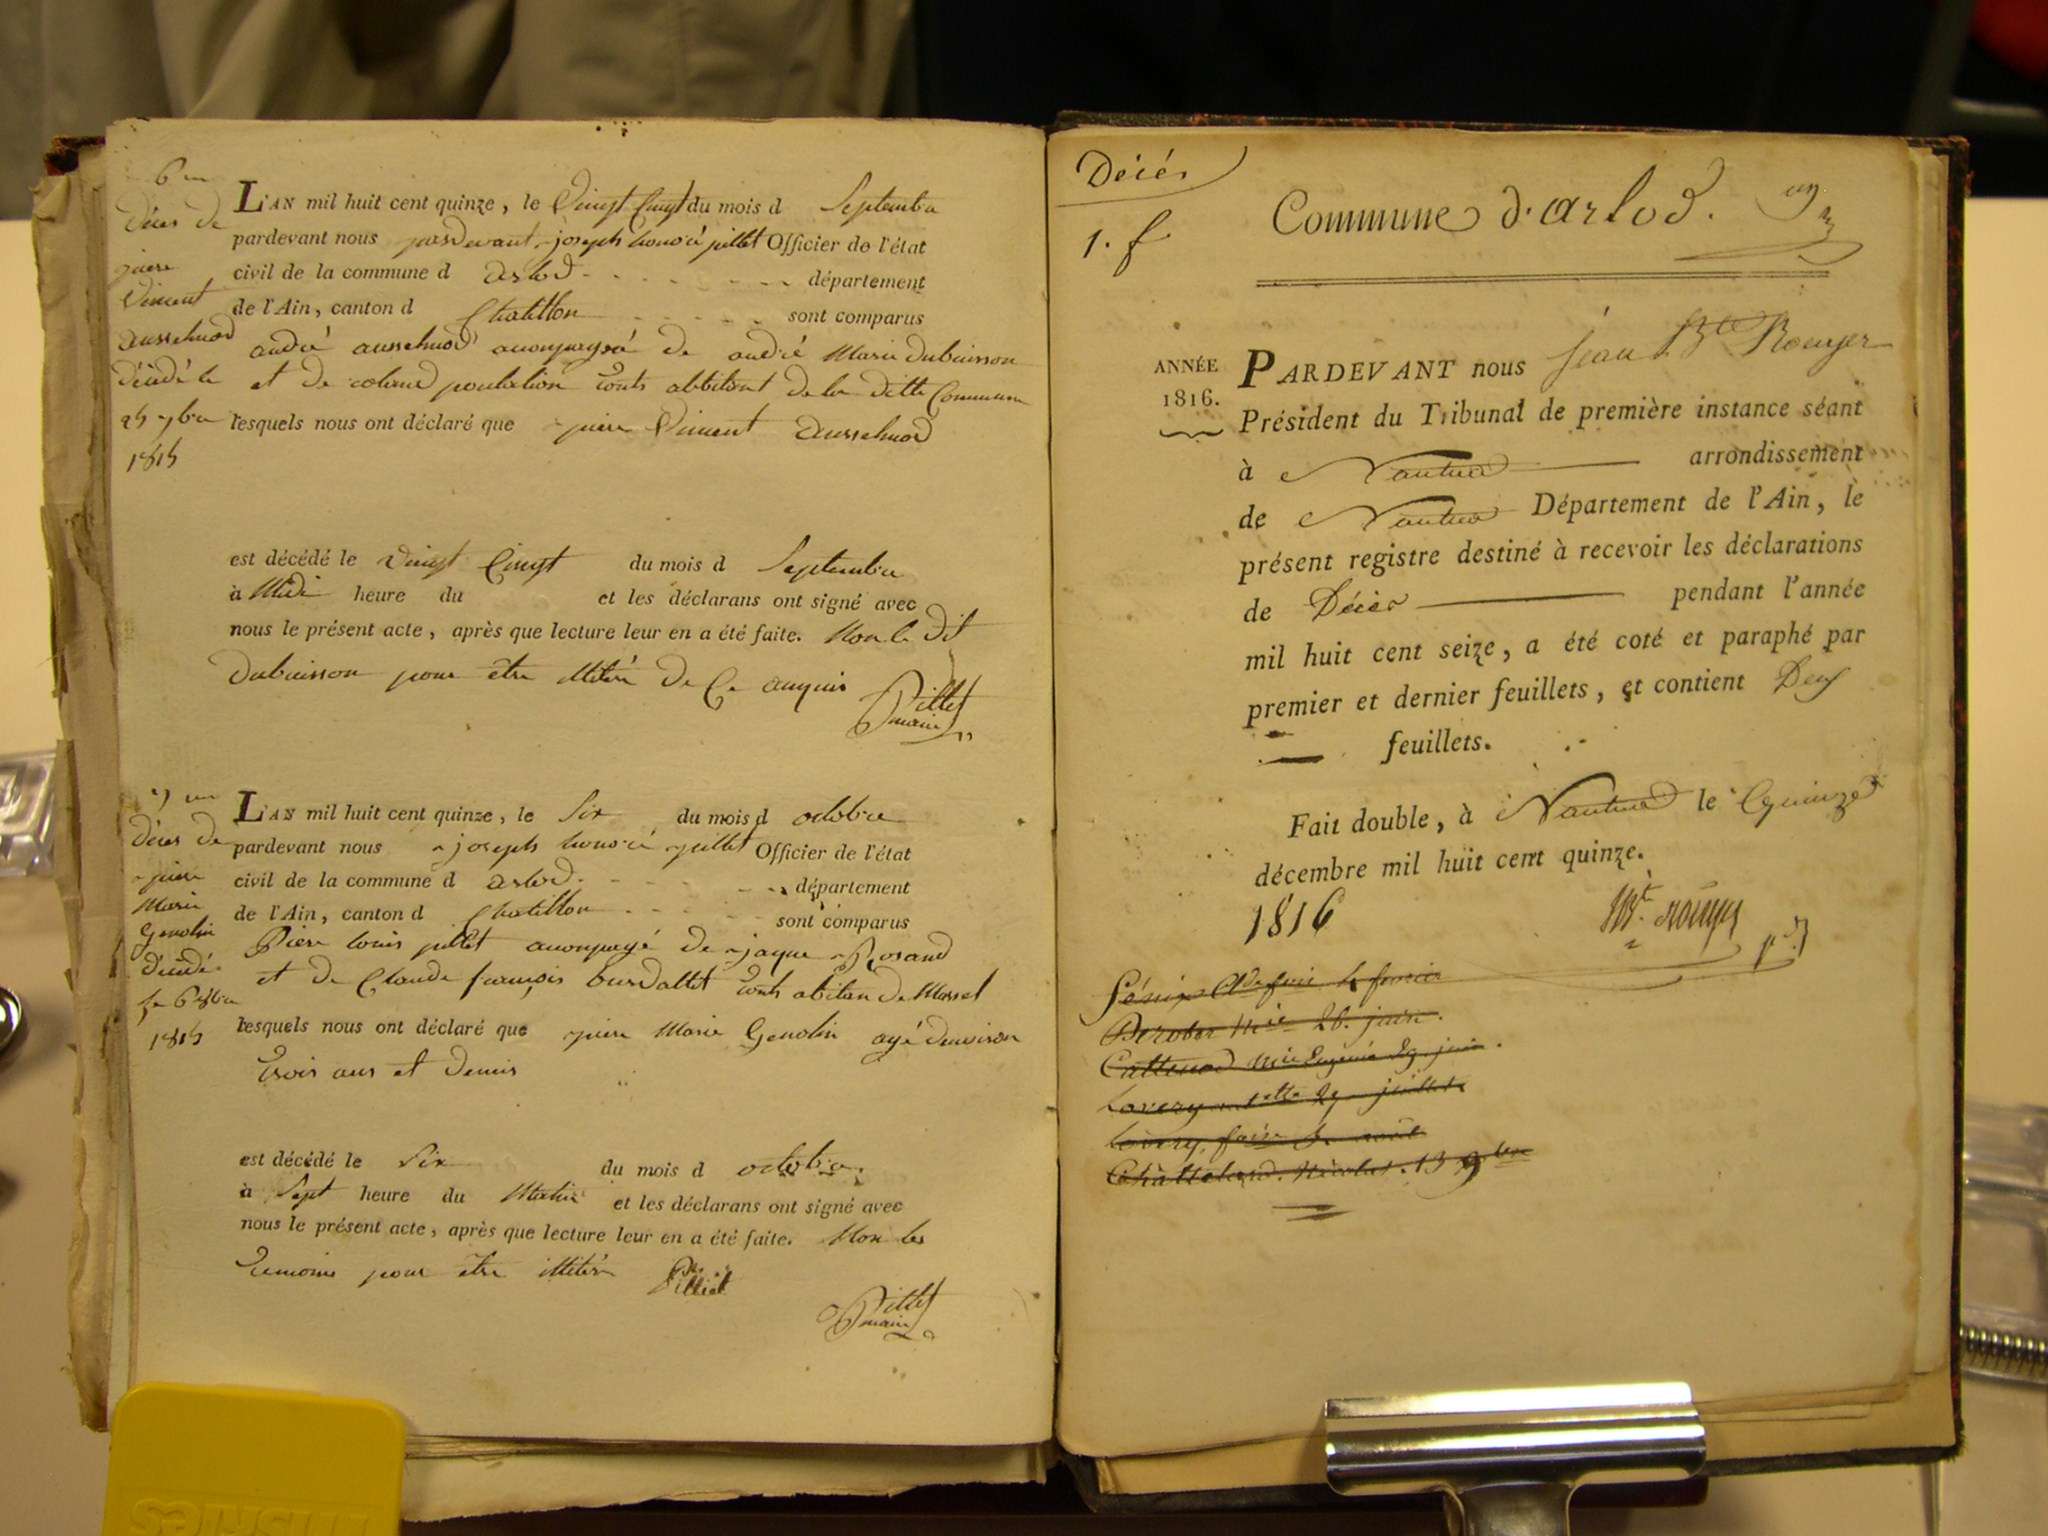 6me
Décès de
pierre
Vincent
ausselmod
décédé le
25 7bre
1815
L'AN mil huit cent quinze, le Vingt Cinqt du mois d Septembre
pardevant nous pardevant joseph honoré pillet Officier de l'état
civil de la commune d arlod département
de l'Ain, canton d Chatillon sont comparus
andré ausselmod acompagné de andré Marie Dubuisson
et de touts abbitant de la ditte Commune
lesquels nous ont déclaré que pierre Vincent ausselmod
est décédé le Vingt Cinqt du mois d Septembre
à Midi heure du et les déclarans ont signé avec
nous le présent acte, après que lecture leur en a été faite. Non le dit
Dubuisson pour etre illiteré de Ce anquis
Pillet
maire
7me
Décès de
pierre
Marie
Genolin
décédé
le 6 8bre
1815
L'AN mil huit cent quinze, le Six du mois d octobre
pardevant nous joseph honoré pillet Officier de l'état
civil de la commune d arlod département
de l'Ain, canton d Chatillon sont comparus
Pierre louis pillet acompagné de jaque Rosand
et de Claude françois burdallet touts abitan de Mussel
lesquels nous ont déclaré que pierre Marie Genolin agé denviron
trois ans et demis
est décédé le Six du mois d octobre
à Sept heure du Matin et les déclarans ont signé avec
nous le présent acte, après que lecture leur en a été faite. Non les
temoins pour etre illiteré Pilliet
Pillet
maire
Décés
1. f
Commune d'arlod.
ANNÉE
1816.
PARDEVANT nous jean Bte Rouyer
Président du Tribunal de première instance séant
à Nantua arrondissement
de Nantua Département de l'Ain, le
présent registre destiné à recevoir les déclarations
de Décès pendant l'année
mil huit cent seize, a été coté et paraphé par
premier et dernier feuillets, et contient Deux
feuillets.
Fait double, à Nantua le Quinze
décembre mil huit cent quinze.
1816
Bt. Rouyer pdt
Génix
26. juin.
Cattenod mie Eugénie 29 juin.
Lovery 29 juillet
Lovery
Châtteland. Nicolas. 13 9bre